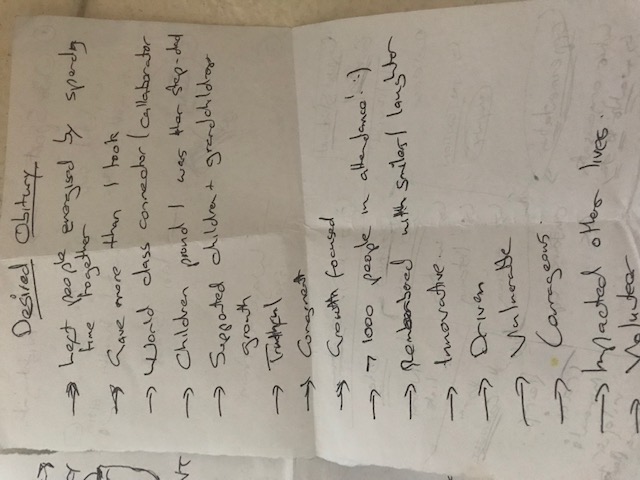 Desired Obitury
→ Left people energised by spending
time together
→ Gave more than I took
→ World class connector / collaborator
→ Children proud I was their step-dad
→ Supported children + grandchildren
growth
→ Truthful
→ Congruent
→ Growth focused
→ > 1000 people in attendance! :)
→ Remembered with smiles / laughter
→ Innovative.
→ Driven
→ Vulnerable
→ Courageous.
→ Impacted other lives.
→ Volunteer